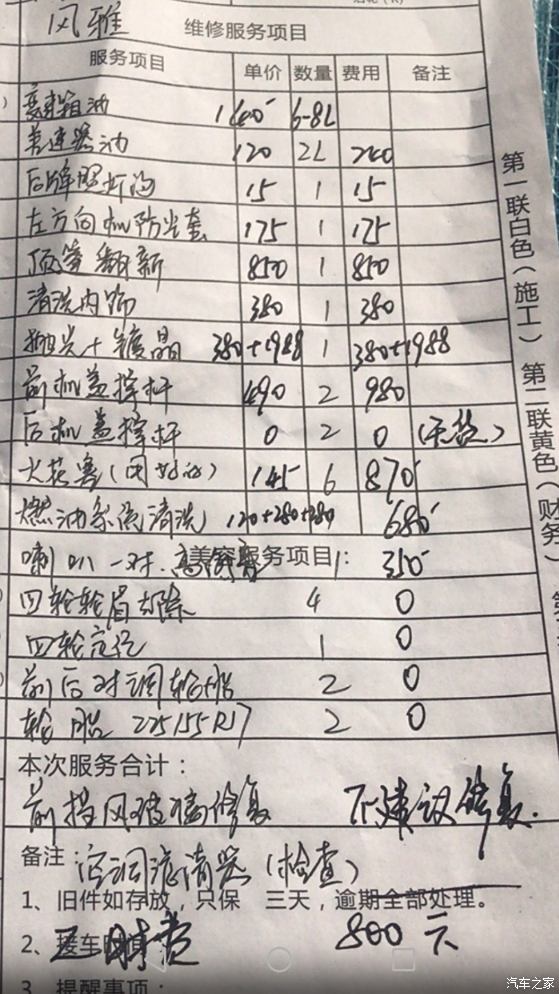 风雅 维修服务项目
服务项目 单价 数量 费用 备注
变速箱油 1640 6-8L
差速器油 120 2L 240
后牌照灯泡 15 1 15
左方向机防尘套 175 1 175
顶篷翻新 850 1 850
清洗内饰 380 1 380
抛光+镀晶 380+1988 1 380+1988
前机盖撑杆 490 2 980
后机盖撑杆 0 2 0 (无货)
火花塞( ) 145 6 870
燃油系统清洗 120+280+280 680
喇叭一对 美容服务项目: 1 350
四轮轮眉却除 4 0
四轮定位 1 0
前后对调轮胎 2 0
轮胎 225/55R17 2 0
本次服务合计:
前挡风玻璃修复 不建议修复.
备注: 空调滤清器(检查)
1、旧件如存放,只保 三天,逾期全部处理。
2、接车 工时费 800元
3、提醒事项:
第一联白色(施工) 第二联黄色(财务) 第
汽车之家